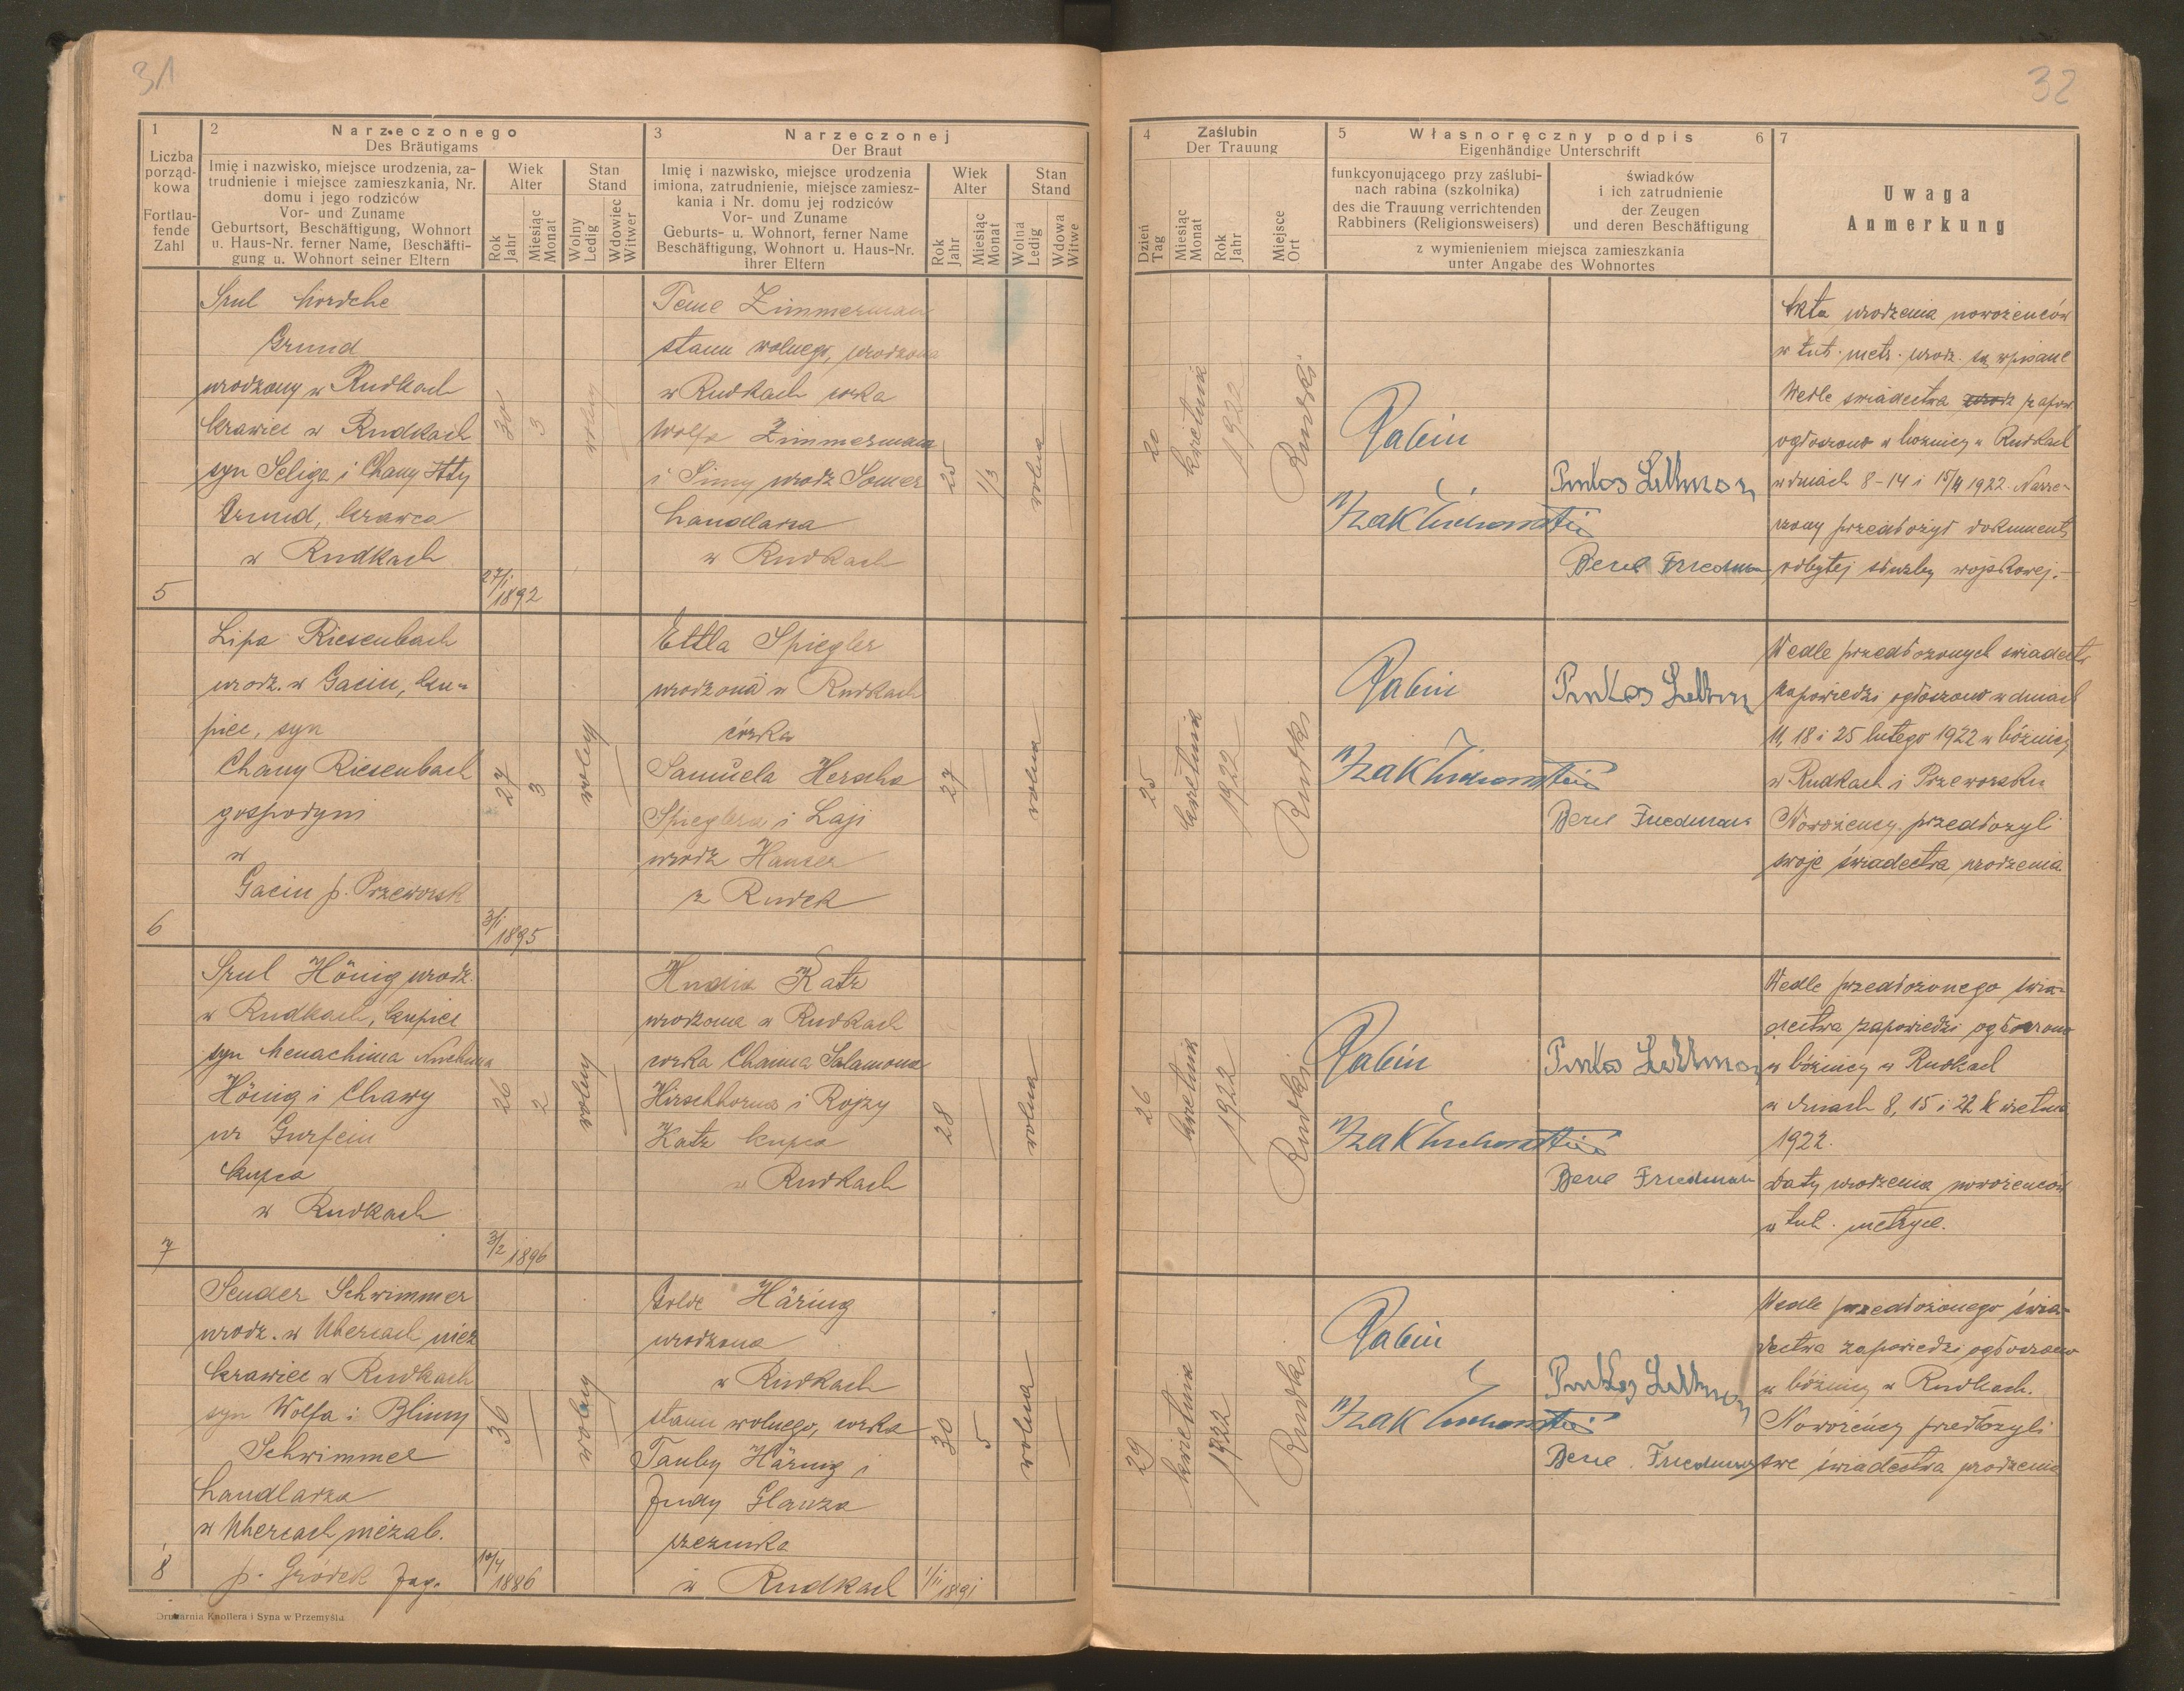 31
32
1
Liczba
porząd-
kowa
Fortlau-
fende
Zahl
2
Narzeczonego
Des Bräutigams
Imię i nazwisko, miejsce urodzenia, za-
trudnienie i miejsce zamieszkania, Nr.
domu i jego rodziców
Vor- und Zuname
Geburtsort, Beschäftigung, Wohnort
u. Haus-Nr. ferner Name, Beschäfti-
gung u. Wohnort seiner Eltern
Wiek
Alter
Rok
Jahr
Miesiąc
Monat
Stan
Stand
Wolny
Ledig
Wdowiec
Witwer
3
Narzeczonej
Der Braut
Imię i nazwisko, miejsce urodzenia
imiona, zatrudnienie, miejsce zamiesz-
kania i Nr. domu jej rodziców
Vor- und Zuname
Geburts- u. Wohnort, ferner Name
Beschäftigung, Wohnort u. Haus-Nr.
ihrer Eltern
Wiek
Alter
Rok
Jahr
Miesiąc
Monat
Stan
Stand
Wolna
Ledig
Wdowa
Witwe
4
Zaślubin
Der Trauung
Dzień
Tag
Miesiąc
Monat
Rok
Jahr
Miejsce
Ort
5
Własnoręczny podpis
6
Eigenhändige Unterschrift
funkcyonującego przy zaślubi-
nach rabina (szkolnika)
des die Trauung verrichtenden
Rabbiners (Religionsweisers)
świadków
i ich zatrudnienie
der Zeugen
und deren Beschäftigung
z wymienieniem miejsca zamieszkania
unter Angabe des Wohnortes
7
Uwaga
Anmerkung
5
Srul Mordche
Grund
urodzony w Rudkach
krawiec w Rudkach
syn Seliga i Chany Itty
Grund, krawca
w Rudkach
30
3
27/I
1892
wolny
Teme Zimmerman
stanu wolnego, urodzona
w Rudkach corka
Wolfa Zimmermana
i Simy urodz Somer
handlarza
w Rudkach
25
1/3
wolna
20
kwietnia
1922
Rudki
Rabin
Pinkas
Berl Friedman
Akta urodzenia nowożeńców
w tut. metr. urodz. są wpisane
Wedle swiadectwa urodz zapow.
ogłoszono w bożnicy w Rudkach
w dniach 8-14 i 15/4 1922. Narze-
czony przedłożył dokument
odbytej służby wojskowej.-
6
Lipa Riesenbach
urodz. w Gaciu, ku-
piec, syn
Chany Riesenbach
gospodyni
w
Gaciu p. Przeworsk
27
3
3/I
1895
wolny
Ettla Spiegler
urodzona w Rudkach
córka
Samuela Herscha
Spieglera i Laji
urodz Hauser
z Rudek
27
wolna
25
kwietnia
1922
Rudki
Rabin
Pinkas
Berl Friedman
Wedle przedłożonych swiadectw
zapowiedzi ogłoszono w dniach
11, 18 i 25 lutego 1922 w bóżnicy
w Rudkach i Przeworsku
Nowożency przedłożyli
swoje świadectwa urodzenia
7
Srul Hönig urodz.
w Rudkach, kupiec
syn Menachima Nuchima
Hönig i Chawy
ur Gurfein
kupca
w Rudkach
26
2
3/2 1896
wolny
Hudia Katz
urodzona w Rudkach
corka Chaima Salamona
Hirschhorna i Rojzy
Katz kupca
w Rudkach
28
wolna
26
kwietnia
1922
Rudki
Rabin
Pinkas
Berl Friedman
Wedle przedłożonego swia-
dectwa zapowiedzi ogłoszono
w bóżnicy w Rudkach
w dniach 8, 15 i 22 kwietnia
1922.
Daty urodzenia nowożeńców
w tut. metryce.
8
Sender Schwimmer
urodz. w Uhercach niez
krawiec w Rudkach
syn Wolfa i Blimy
Schwimmer
handlarza
w Uhercach niezab.
p. Gródek Jag.
36
10/4
1886
wolny
Golde Häring
urodzona
w Rudkach
stanu wolnego, corka
Tauby Häring i
Judy Glanza
rzeznika
w Rudkach
30
5
1/11 1891
wolna
29
kwietnia
1922
Rudki
Rabin
Pinkas
Berl Friedman
Wedle przedłożonego świa-
dectwa zapowiedzi ogłoszono
w bóżnicy w Rudkach.
Nowożeńcy przedłożyli
swe świadectwa urodzenia
Drukarnia Knollera i Syna w Przemyślu